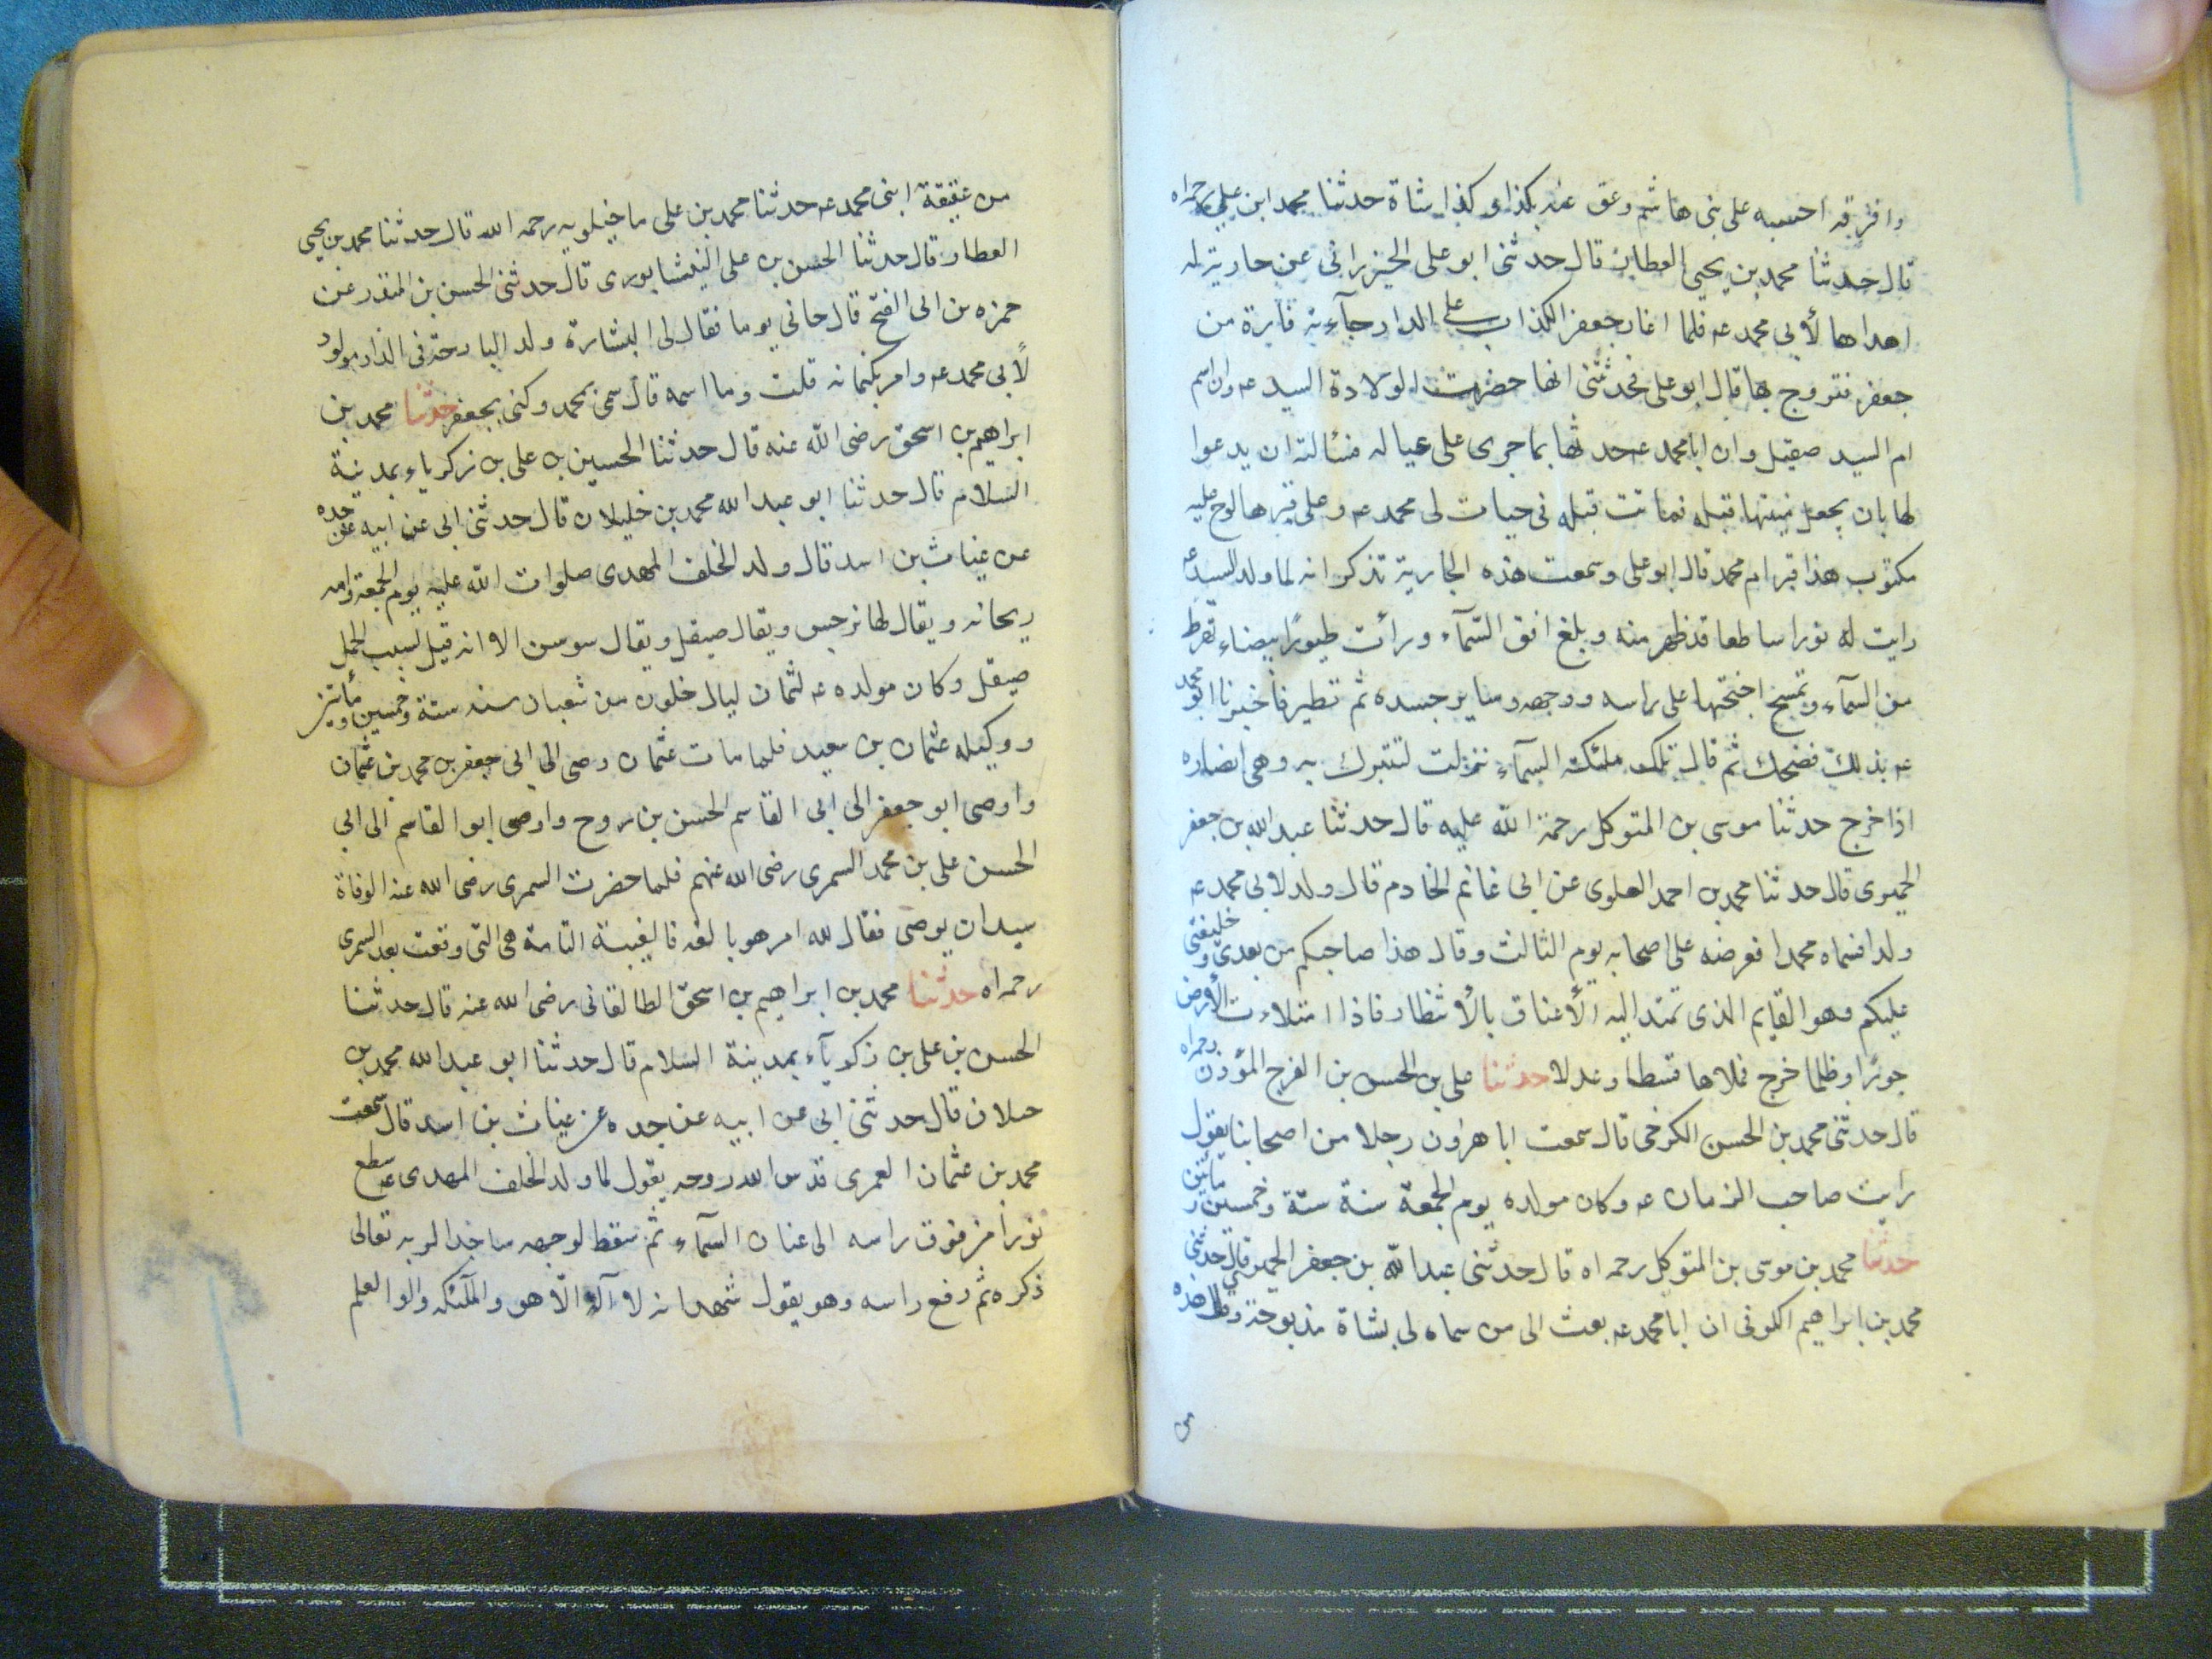 وافرقه احسبه على بنى هاشم وعق عنه بكذا و كذا شاة حدثنا محمد ابن علي رحمراه
قال حدثنا محمد بن يحيى العطار قال حدثنى ابو على الخيزرانى عن جارية له
اهداها لأبى محمد عه فلما اغار جعفر الكذاب على الدار جآءته فارة من
جعفر فتزوج بها قال ابو على فحدثتنى انها حضرت لولادة السيد عه وان اسم
ام السيد صقيل وان ابا محمد عه حدثها بما جرى على عياله فسئالته ان يدعوا
لها بان يجعل منيتها قبله فماتت قبله فى حيات لى محمد عه وعلى قبرها لوح عليه
مكتوب هذا قبر ام محمد قال ابو على وسمعت هذه الجارية تذكر انه لما ولد السيد عه
رايت له نورا ساطعا قد ظهر منه وبلغ افق السمآء ورأت طيورًا بيضاء تهبط
من السمآء وتمسح اجنحتها على راسه ووجهه وساير جسده ثم تطير فاخبرنا ابو محمد
عه بذلك فضحك ثم قال تلك ملئكة السمآء نزلت لتتبرك به وهى انصاره
اذا خرج حدثنا موسى بن المتوكل رحمة الله عليه قال حدثنا عبد الله بن جعفر
الحميرى قال حدثنا محمد بن احمد العلوى عن ابى غانم الخادم قال ولد لابى محمد عه
ولد فسماه محمدا فعرضه على اصحابه يوم الثالث وقال هذا صاحبكم من بعدى و خليفتى
عليكم وهو القايم الذى تمتد اليه الأعناق بالأنتظار فاذا امتلاءت الأرض
جورًا وظلما خرج فملاها قسطا وعدلا حدثنا على بن الحسن بن الفرج المؤذن رحمراه
قال حدثنى محمد بن الحسن الكرخى قال سمعت ابا هرون رجلا من اصحابنا يقول
رايت صاحب الزمان عه وكان مولده يوم الجمعة سنة ستة وخمسين و مأتين
حدثنا محمد بن موسى بن المتوكل رحمراه قال حدثنى عبد الله بن جعفر الحميرى قال حدثنى
محمد بن ابراهيم الكوفى ان ابا محمد عه بعث الى من سماه لى بشاة مذبوحة وقال هذه
من
من عقيقة ابنى محمد عه حدثنا محمد بن على ماجيلويه رحمه الله قال حدثنا محمد بن يحيى
العطار قال حدثنا الحسن بن على النيشابورى قال حدثنى الحسن بن المنذر عن
حمزه بن ابى الفتح قال جانى يوما فقال لى البشارة ولد البارحة فى الدار مولود
لأبى محمد عه وامر بكتمانه قلت وما اسمه قال سمى بمحمد وكنى بجعفر حدثنا محمد بن
ابراهيم بن اسحق رضى الله عنه قال حدثنا الحسين بن على بن زكرياء بمدينة
السلام قال حدثنا ابو عبد الله محمد بن خليلان قال حدثنى ابى عن ابيه عن جده
عن غياث بن اسد قال ولد الخلف المهدى صلوات الله عليه يوم الجمعة وامه
ريحانه ويقال لها نرجس ويقال صيقل ويقال سوسن الا انه قيل لسبب الحمل
صيقل وكان مولده عه لثمان ليال خلون من شعبان سنه ستة وخمسين ومأتين
ووكيله عثمان بن سعيد فلما مات عثمان وصى الى ابى جعفر بن محمد بن عثمان
واوصى ابو جعفر الى ابى القاسم الحسن بن روح واوصى ابو القاسم الى ابى
الحسن على بن محمد السمرى رضى الله عنهم فلما حضرت السمرى رضى الله عنه الوفاة
سيدان يوصى فقال لله امر هو بالغه فالغيبة التامة هى التى وقعت بعد السمرى
رحمراه حدثنا محمد بن ابراهيم بن اسحق الطالقانى رضى الله عنه قال حدثنا
الحسن بن على بن زكريآء بمدينة السلام قال حدثنا ابو عبد الله محمد بن
حلان قال حدثنى ابى عن ابيه عن جده عن غياث بن اسد قال سمعت
محمد بن عثمان العمرى قدس الله روحه يقول لما ولد الخلف المهدى عه سطع
نورا من فوق راسه الى عنان السمآء ثم سقط لوجهه ساجدا لربه تعالى
ذكره ثم رفع راسه وهو يقول شهد انه لا اله الا هو والملئكه والوا العلم